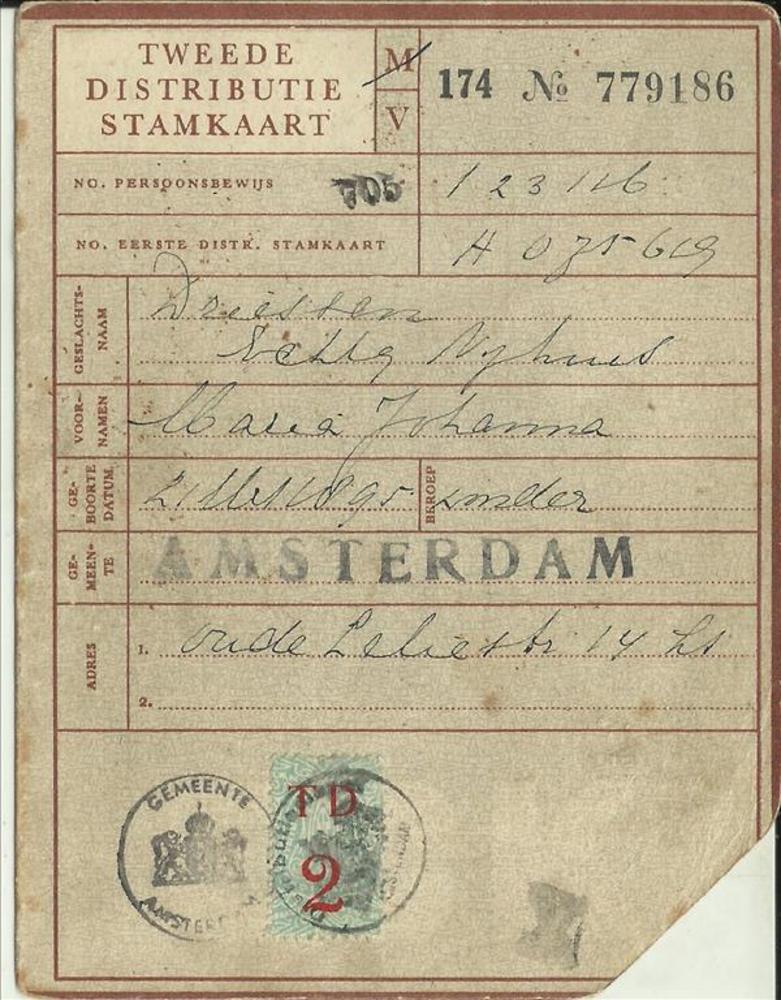 TWEEDE
DISTRIBUTIE
STAMKAART
M
V
174 № 779186
NO. PERSOONSBEWIJS
705
123126
NO. EERSTE DISTR. STAMKAART
GESLACHTS-
NAAM
Driessen
Nyhuis
VOOR-
NAMEN
Maria Johanna
GE-
BOORTE
DATUM
21 1895
BEROEP
zonder
GE-
MEEN-
TE
AMSTERDAM
ADRES
1. Oude Leliestr 14 hs
2.
GEMEENTE
AMSTERDAM
TD
2